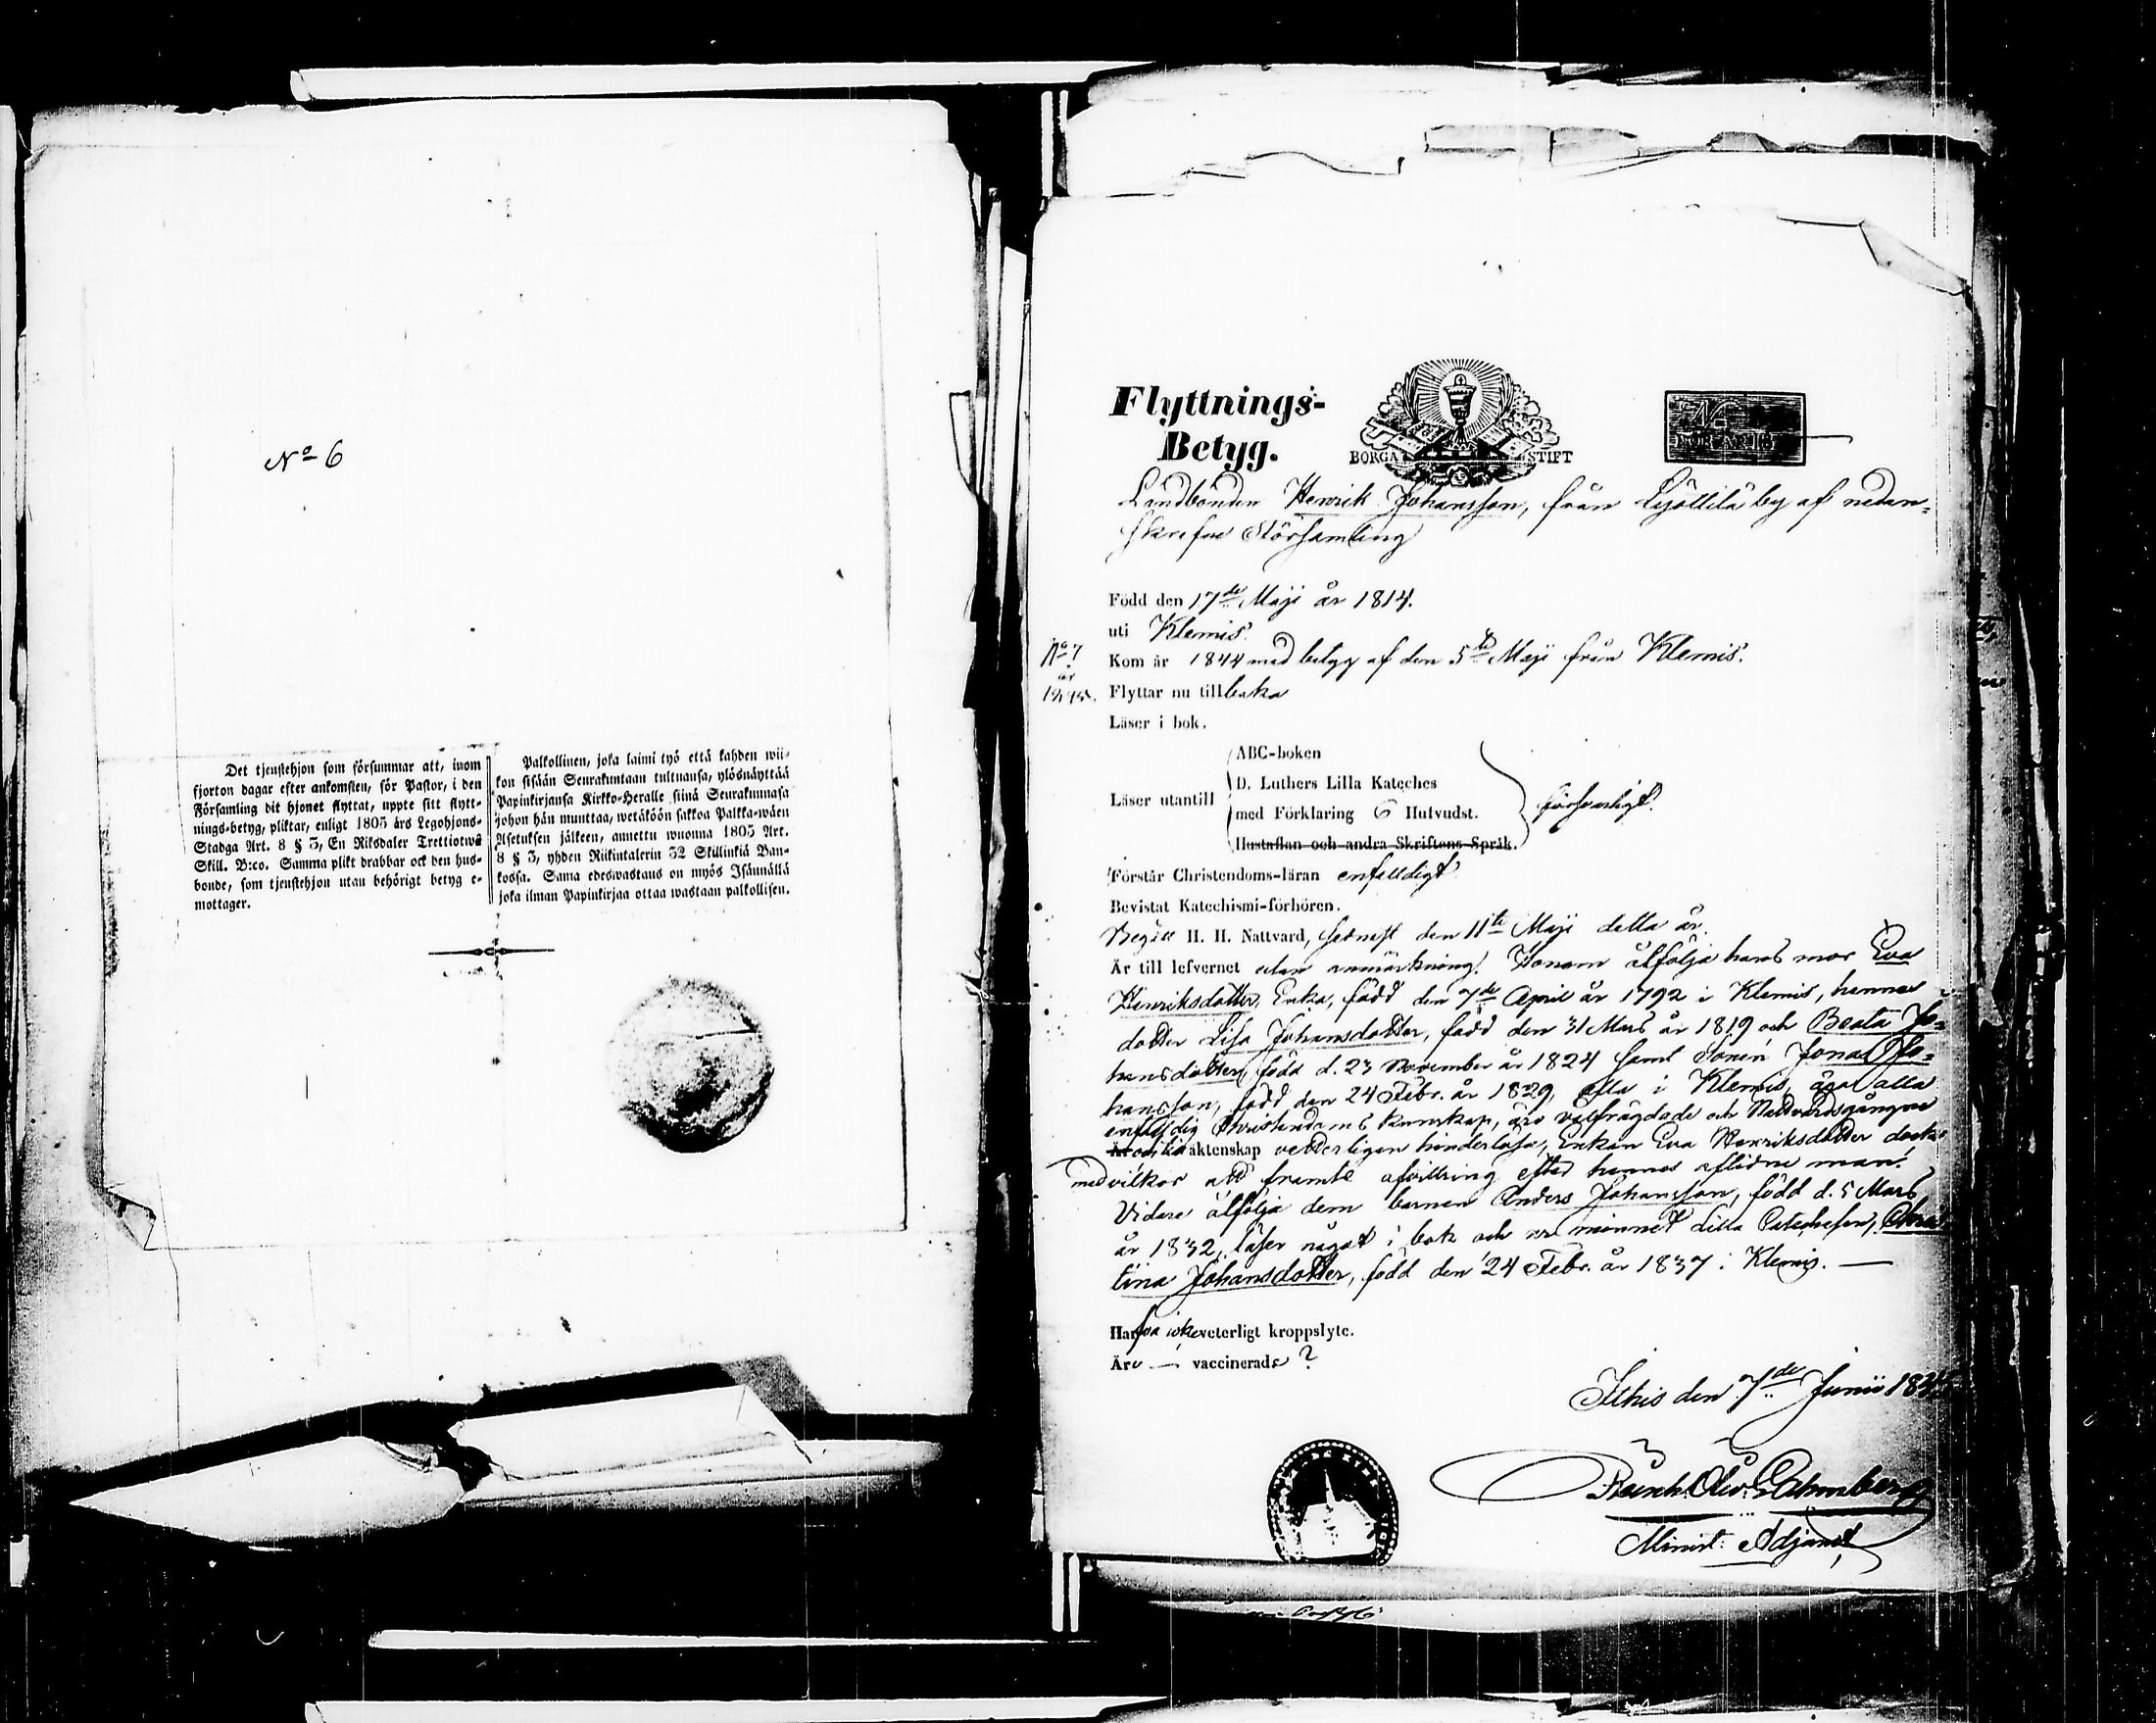 Nº 6
Det tjenstehjon som försummar att, inom
fjorton dagar efter ankomsten, för Pastor, i den
Församling dit hjonet flyttat, uppte sitt flytt-
nings-betyg, pliktar, enligt 1805 års Legohjons-
Stadga Art. 8 § 3, En Riksdaler Trettiotwå
Skill. B:co. Samma plikt drabbar ock den hus-
bonde, som tjenstehjon utan behörigt betyg e-
mottager.
Palkollinen, joka laimi lyö että kahden wii-
kon sisään Seurakuntaan tultuansa, ylösnäyttää
Papinkirjansa Kirkko-Heralle siinä Seurakunnasa
johon hän muuttaa, wetäköön sakkoa Palkka-wäen
Asetuksen jälkeen, annettu wuonna 1805 Art.
8 § 3, yhden Riikintalerin 32 Skillinkiä Ban-
kossa. Sama edeswastaus on myös Isännällä
joka ilman Papinkirjaa ottaa wastaan palkollisen.
Flyttnings-
Betyg.
BORGÅ STIFT
Landbonden Henrik Johansson, från by af nedan-
skrefne Församling
Född den 17de Maji år 1814.
uti Klemis.
Nº 7
Kom år 1844 med betyg af den 5te Maji från Klemis.
Flyttar nu tillbaka
Läser i bok.
Läser utantill
ABC-boken
D. Luthers Lilla Kateches
med Förklaring 6 Hufvudst.
Hustaflan och andra Skriftens Språk.
försvarligt.
Förstår Christendoms-läran enfaldigt
Bevistat Katechismi-förhören.
Begått H. H. Nattvard, sednast den 11te Maji detta år.
Är till lefvernet utan anmärkning. Honom åtfölja hans mor Eva
Henriksdotter, Enka, född den 7de April år 1792 i Klemis, hennes
dotter Lisa Johansdotter, född den 31 Mars år 1819 och Beata Jo-
hansdotter, född d. 23 November år 1824 samt Sonen Jonas Jo-
hansson, född den 24 Febr. år 1829, alla i Klemis, äga alla
enfaldig Christendoms kunskap, äro välfrägdade och Nattvardsgångne
och till äktenskap vetterligen hinderlösa, Enkan Eva Henriksdotter dock
med vilkor att framte afvittring efter hennes aflidne man.
Vidare åtfölja dem barnen Anders Johansson, född d. 5 Mars
år 1832, läser något i bok och ur minnet lilla Catechesen, Chris-
tina Johansdotter, född den 24 Febr. år 1837 i Klemis. —
Hafva icke veterligt kroppslyte.
Äro — vaccinerade?
Ithis den 7de Junii
Minist: Adjunct